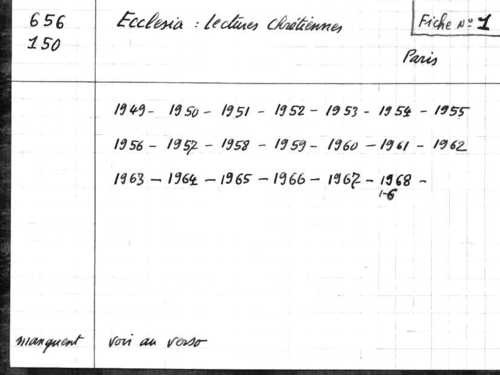 656
150
Ecclesia : Lectures Chrétiennes
Fiche No 1
Paris
1949 - 1950 - 1951 - 1952 - 1953 - 1954 - 1955
1956 - 1957 - 1958 - 1959 - 1960 - 1961 - 1962
1963 - 1964 - 1965 - 1966 - 1967 - 1968 -
1-6
manquent
voir au verso